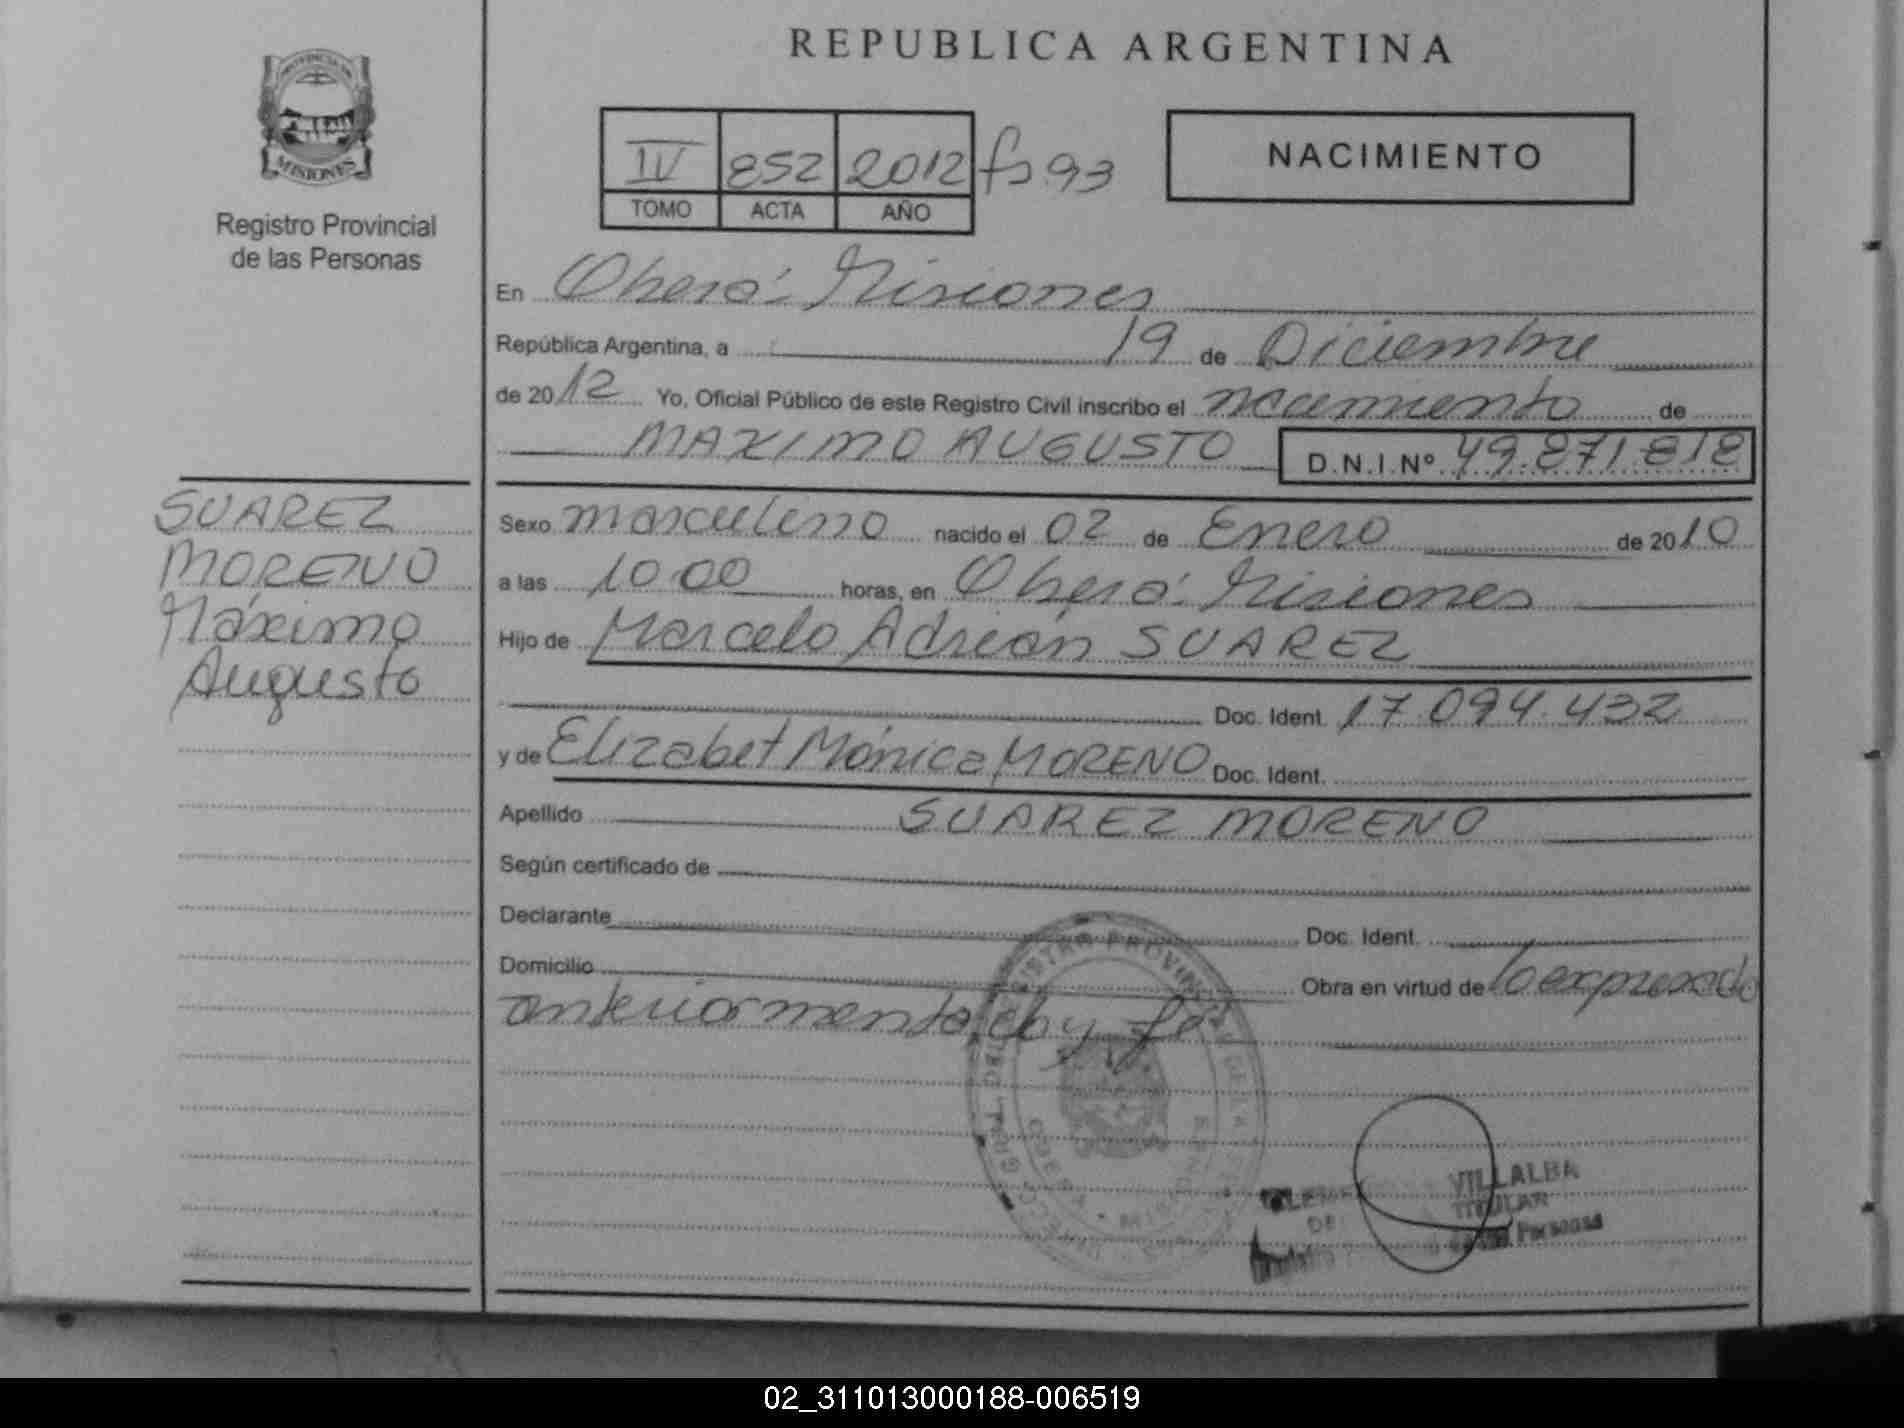 REPUBLICA ARGENTINA
PROVINCIA DE
MISIONES
Registro Provincial
de las Personas
IV 852 2012 fs 93
TOMO ACTA AÑO
NACIMIENTO
En Oberá: Misiones
República Argentina, a 19 de Diciembre
de 2012 Yo, Oficial Público de este Registro Civil inscribo el nacimiento de
MAXIMO AUGUSTO D.N.I.Nº 49.871.818
SUAREZ
MORENO
Máximo
Augusto
Sexo masculino nacido el 02 de Enero de 2010
a las 10 00 horas, en Oberá: Misiones
Hijo de Marcelo Adrián SUAREZ
Doc. Ident. 17.094.432
y de Elizabet Mónica MORENO Doc. Ident.
Apellido SUAREZ MORENO
Según certificado de
Declarante Doc. Ident.
Domicilio Obra en virtud de lo expresado
anteriormente, doy fé
VILLALBA
TITULAR
Personas
02_311013000188-006519